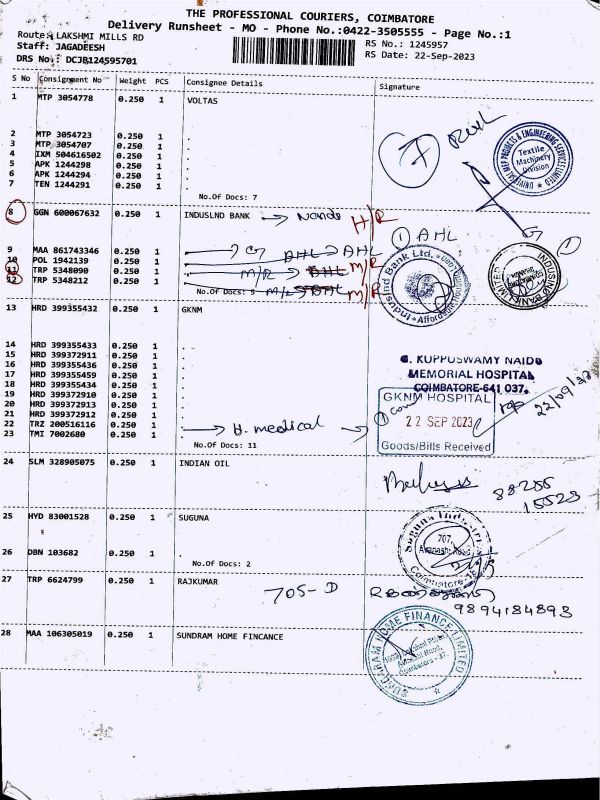 THE PROFESSIONAL COURIERS, COIMBATORE
Delivery Runsheet - MO - Phone No.:0422-3505555 - Page No.:1
Route: LAKSHMI MILLS RD
RS No.: 1245957
Staff: JAGADEESH
RS Date: 22-Sep-2023
DRS No: DCJB124595701
S No Consignment No Weight PCS Consignee Details Signature
1 MTP 3054778 0.250 1 VOLTAS
2 MTP 3054723 0.250 1 .
3 MTP 3054707 0.250 1 .
4 IXM 504616502 0.250 1 .
5 APK 1244298 0.250 1 .
6 APK 1244294 0.250 1 .
7 TEN 1244291 0.250 1 .
No.Of Docs: 7
7
UNIVERSAL MEP PRODUCTS & ENGINEERING SERVICES LIMITED
Textile
Machinery
Division
8 GGN 600067632 0.250 1 INDUSLND BANK
H/R
9 MAA 861743346 0.250 1 .
10 POL 1942139 0.250 1 .
11 TRP 5348090 0.250 1 .
12 TRP 5348212 0.250 1 .
No.Of Docs: 5
AHL
M/R
M/R
1 AHL
IndusInd Bank Ltd.
INDUSIND BANK LIMITED
1
13 HRD 399355432 0.250 1 GKNM
14 HRD 399355433 0.250 1 .
15 HRD 399372911 0.250 1 .
16 HRD 399355436 0.250 1 .
17 HRD 399355459 0.250 1 .
18 HRD 399355434 0.250 1 .
19 HRD 399372910 0.250 1 .
20 HRD 399372913 0.250 1 .
21 HRD 399372912 0.250 1 .
22 TRZ 200516116 0.250 1 .
23 TMI 7002680 0.250 1 .
No.Of Docs: 11
H. medical
G. KUPPUSWAMY NAIDU
MEMORIAL HOSPITAL
COIMBATORE-641 037.
GKNM HOSPITAL
22 SEP 2023
Goods/Bills Received
22/09/23
24 SLM 328905075 0.250 1 INDIAN OIL
88255
15523
25 HYD 83001528 0.250 1 SUGUNA
26 DBN 103682 0.250 1 .
No.Of Docs: 2
Suguna Industries
707,
Avanashi Road
Coimbatore-18
27 TRP 6624799 0.250 1 RAJKUMAR
705-D
9894184893
28 MAA 106305019 0.250 1 SUNDRAM HOME FINCANCE
SUNDARAM HOME FINANCE LIMITED
Avinashi Road,
Coimbatore - 37.